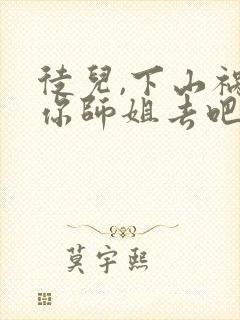 徒兒,下山禍
你師姐去吧
莫宇熙